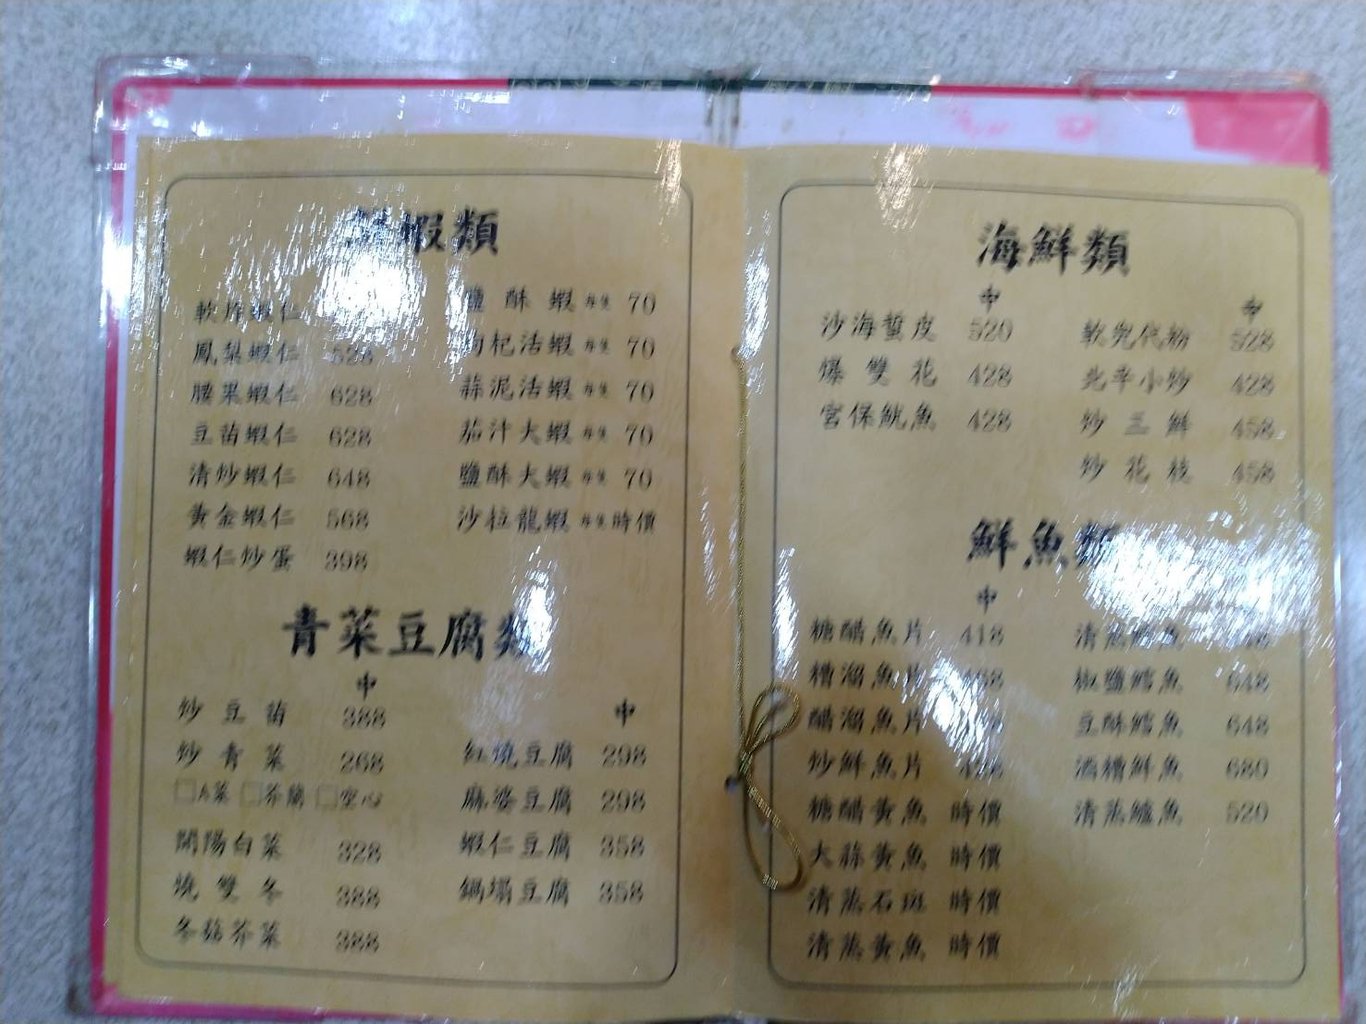 蝦類
軟炸蝦仁
鳳梨蝦仁 528
腰果蝦仁 628
豆苗蝦仁 628
清炒蝦仁 648
黃金蝦仁 568
蝦仁炒蛋 398
鹽酥蝦 每隻 70
枸杞活蝦 每隻 70
蒜泥活蝦 每隻 70
茄汁大蝦 每隻 70
鹽酥大蝦 每隻 70
沙拉龍蝦 每隻 時價
青菜豆腐類
中
炒豆苗 388
炒青菜 268
□A菜 □芥蘭 □空心
開陽白菜 328
燒雙冬 388
冬菇芥菜 388
中
紅燒豆腐 298
麻婆豆腐 298
蝦仁豆腐 358
鍋塌豆腐 358
海鮮類
中
沙海蜇皮 520
爆雙花 428
宮保魷魚 428
中
軟兜代粉 528
北辛小炒 428
炒三鮮 458
炒花枝 458
鮮魚類
中
糖醋魚片 418
糟溜魚片
醋溜魚片
炒鮮魚片 428
糖醋黃魚 時價
大蒜黃魚 時價
清蒸石斑 時價
清蒸黃魚 時價
清蒸鱈魚
椒鹽鱈魚 648
豆酥鱈魚 648
酒糟鮮魚 680
清蒸鱸魚 520